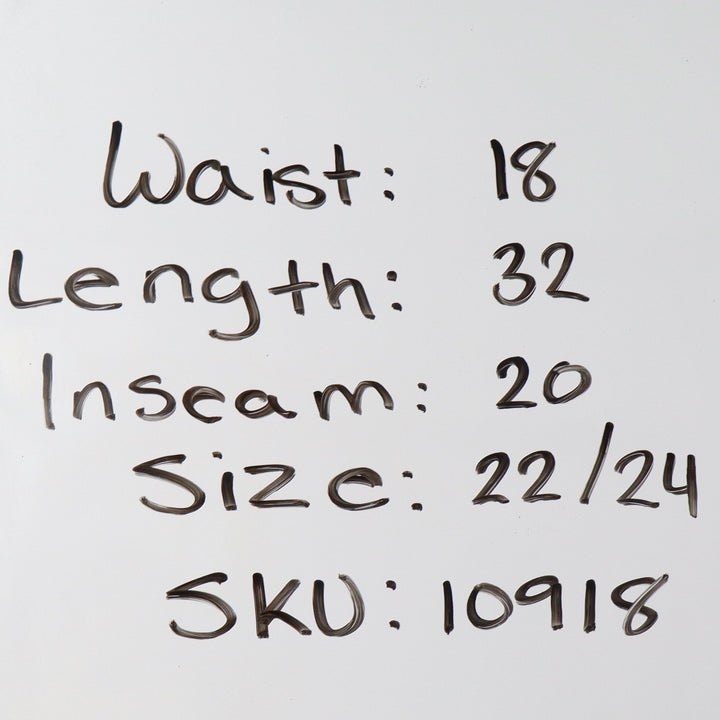 Waist: 18
Length: 32
Inseam: 20
Size: 22/24
SKU: 10918